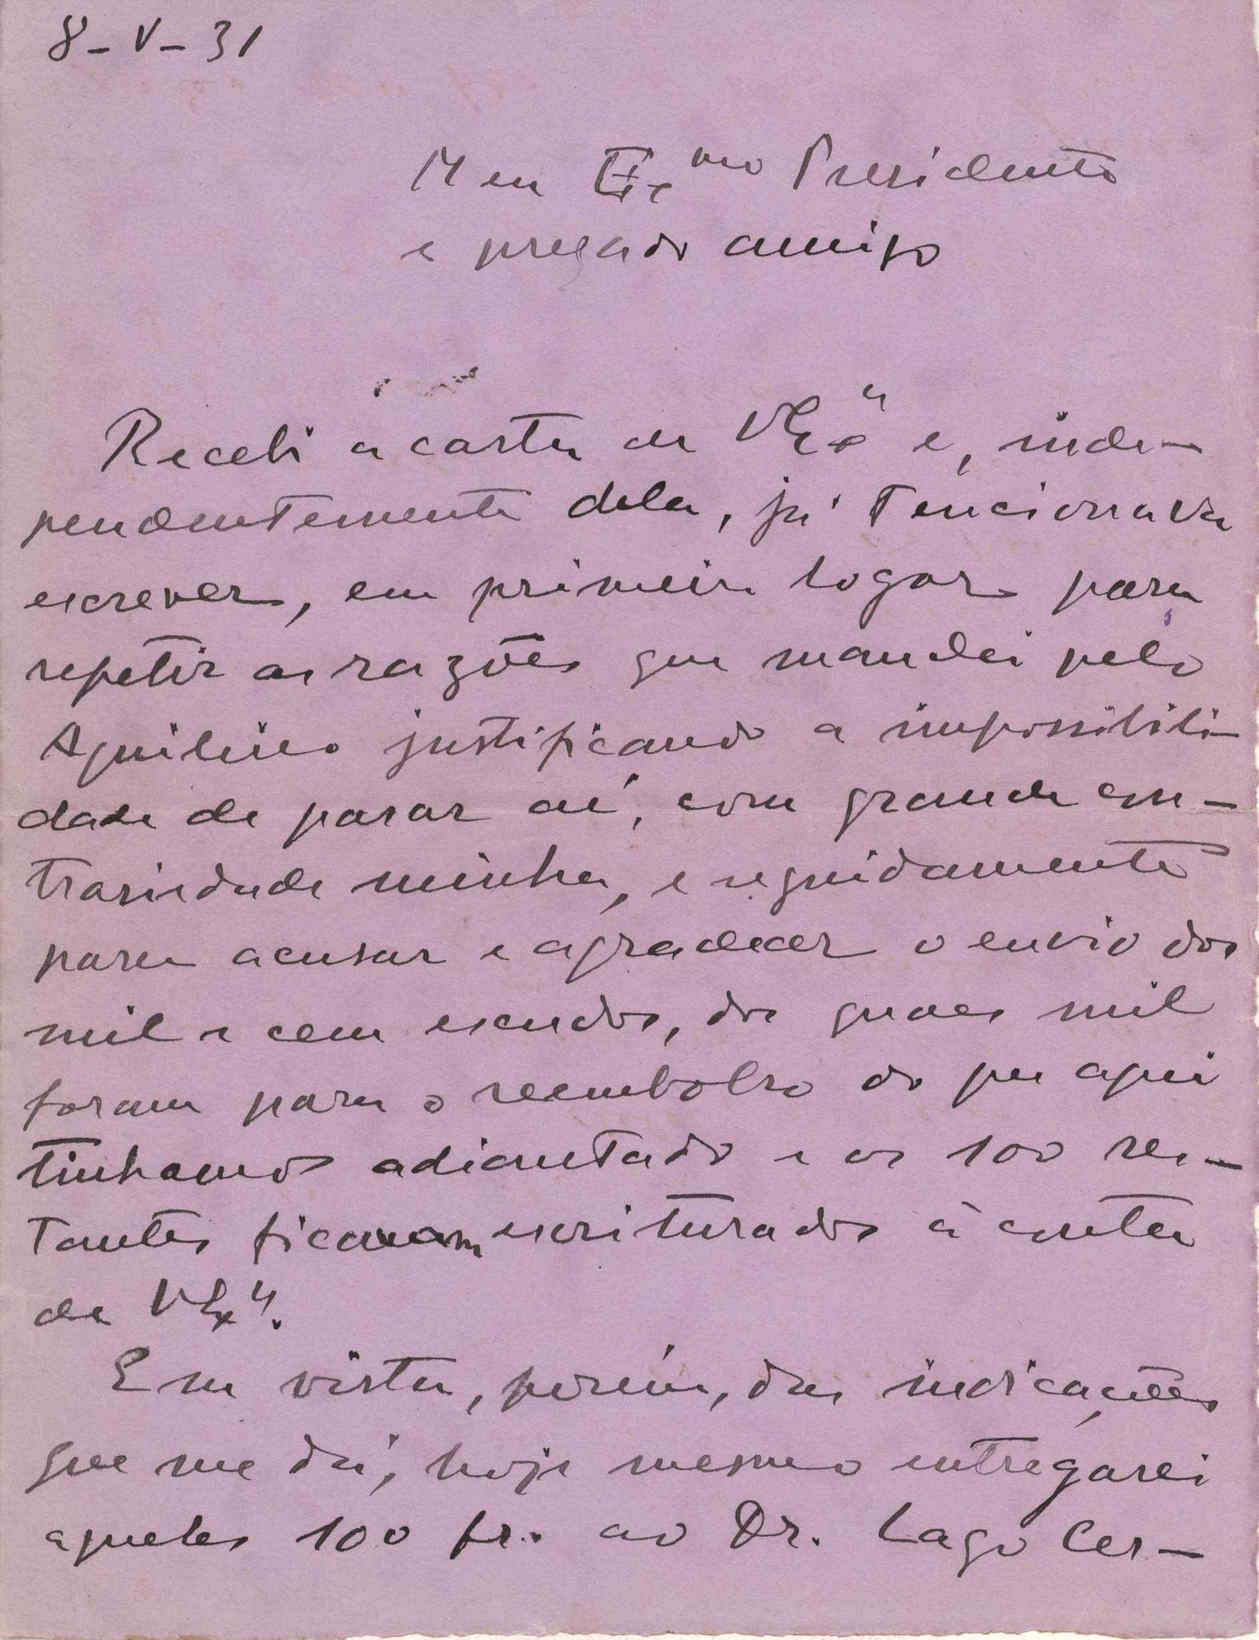 8-V-31
Meu Exmo Presidente
e presado amigo
Recebi a carta de VExa e, inde-
pendentemente dela, já tencionava
escrever, em primeiro logar para
repetir as razões que mandei pelo
Aquilino justificando a impossibili-
dade de parar aí, com grande con-
trariedade minha, e seguidamente
para acusar e agradecer o envio dos
mil e cem escudos, dos quaes mil
foram para o reembolso do que aqui
tinhamos adiantado e os 100 res-
tantes ficavam escriturados à conta
de VExa.
Em vista, porém, das indicações
que me dá, hoje mesmo entregarei
aqueles 100 fr. ao Dr. Lago Cer-